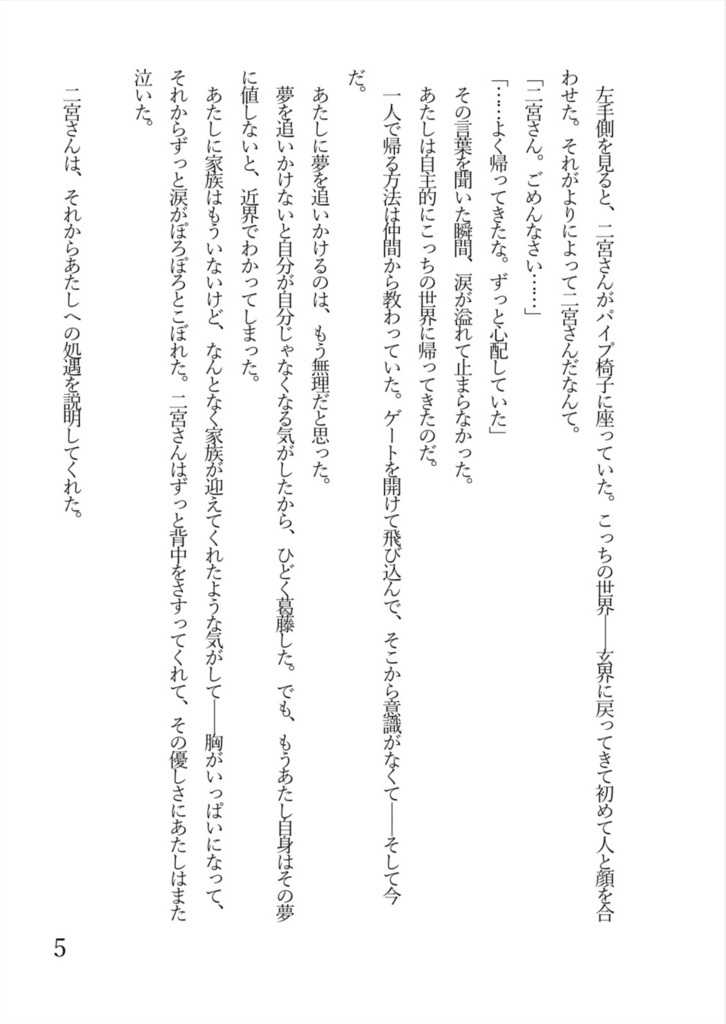 左手側を見ると、二宮さんがパイプ椅子に座っていた。こっちの世界――玄界に戻ってきて初めて人と顔を合
わせた。それがよりによって二宮さんだなんて。
「二宮さん。ごめんなさい……」
「……よく帰ってきたな。ずっと心配していた」
　その言葉を聞いた瞬間、涙が溢れて止まらなかった。
　あたしは自主的にこっちの世界に帰ってきたのだ。
　一人で帰る方法は仲間から教わっていた。ゲートを開けて飛び込んで、そこから意識がなくて――そして今
だ。
　あたしに夢を追いかけるのは、もう無理だと思った。
　夢を追いかけないと自分が自分じゃなくなる気がしたから、ひどく葛藤した。でも、もうあたし自身はその夢
に値しないと、近界でわかってしまった。
　あたしに家族はもういないけど、なんとなく家族が迎えてくれたような気がして――胸がいっぱいになって、
それからずっと涙がぽろぽろとこぼれた。二宮さんはずっと背中をさすってくれて、その優しさにあたしはまた
泣いた。
　二宮さんは、それからあたしへの処遇を説明してくれた。
5